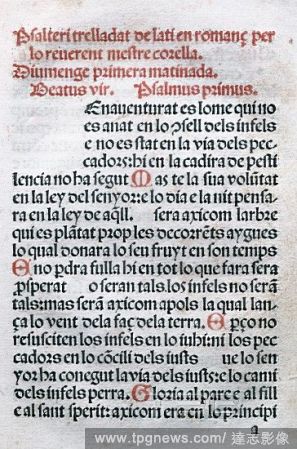 Psalteri trelladat de lati en romanç per
lo reuerent mestre corella.
Diumenge primera matinada.
Beatus vir. Psalmus primus.
Enauenturat es lome qui no
es anat en lo ↄsell dels infels
e no es stat en la via dels pec
cadors: hi en la cadira de pesti
lencia no ha segut Mas te la sua volūtat
en la ley del senyor: e lo dia e la nit pensa
ra en la ley de aq̄ll. sera axi com larbre
qui es plātat prop les decorrēts aygues
lo qual donara lo seu fruyt en son temps
E no pdra fulla hi en tot lo que fara sera
psperat o seran tals. los infels no serā
tals: mas serā axi com a pols la qual lan
ça lo vent de la faç de la terra. E pço no
resusciten los infels en lo iuhi: ni los pec
cadors en lo cōcili dels iusts ue lo sen
yor ha conegut la via dels iusts: e lo cami
dels infels perra. Gloria al pare e al fill
e al sant sperit: axi com era en lo principi
a
www.tpgnews.com/ 達志影像